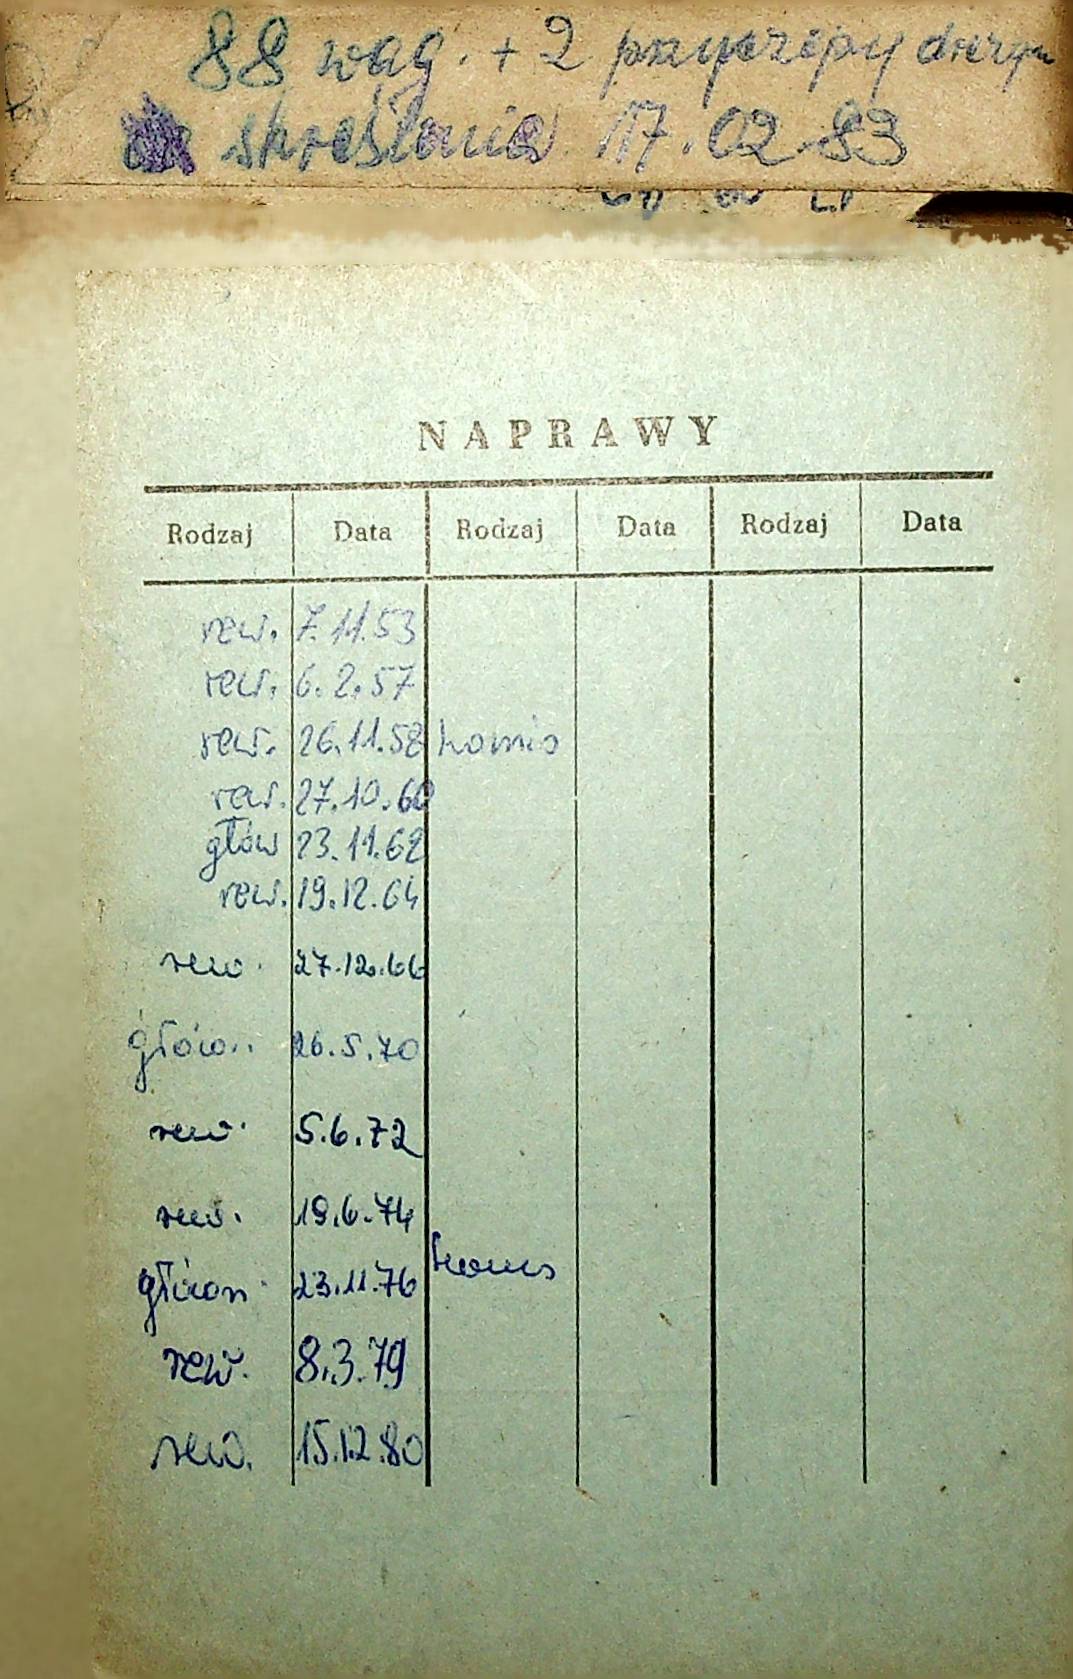 88 wag. + 2 przyczepy
skreślenia 17.02.83
NAPRAWY
Rodzaj Data Rodzaj Data Rodzaj Data
rew. 7.11.53
rew. 6.2.57
rew. 26.11.58
rew. 27.10.60
głów 23.11.62
rew. 19.12.64
rew. 27.12.66
główn. 26.5.70
rew. 5.6.72
rew. 19.6.74
główn. 23.11.76
rew. 8.3.79
rew. 15.12.80